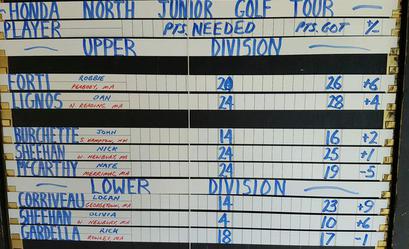 HONDA NORTH JUNIOR GOLF TOUR
PLAYER PTS. NEEDED PTS. GOT +/-
UPPER DIVISION
FORTI ROBBIE PEABODY, MA 20 26 +6
LIGNOS DAN N. READING, MA 24 28 +4
BURCHETTE JOHN S. HAMPTON, NH 14 16 +2
SHEEHAN NICK W. NEWBURY, MA 24 25 +1
MCCARTHY NATE MERRIMAC, MA 24 19 -5
LOWER DIVISION
CORRIVEAU LOGAN GEORGETOWN, MA 14 23 +9
SHEEHAN OLIVIA W. NEWBURY, MA 4 10 +6
GARDELLA RICK ROWLEY, MA 18 17 -1